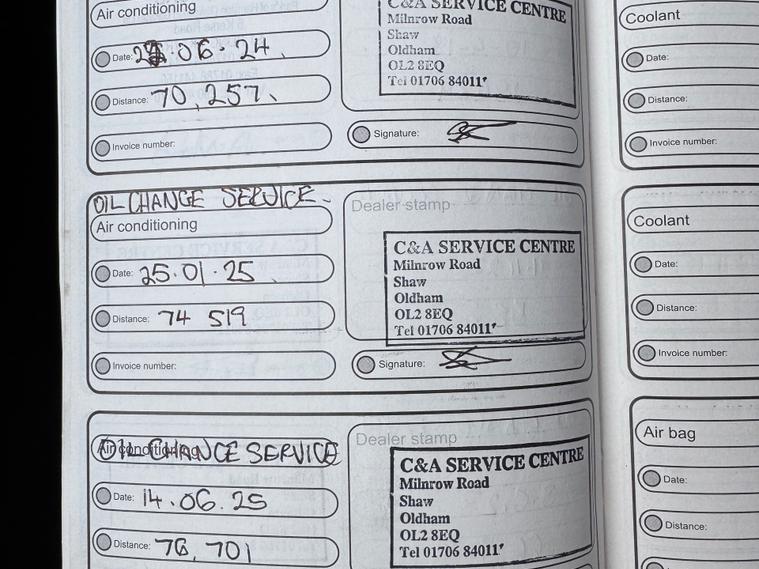 Air conditioning
Date: 25.06.24
Distance: 70,257
Invoice number:
C&A SERVICE CENTRE
Milnrow Road
Shaw
Oldham
OL2 8EQ
Tel 01706 84011
Signature:
Coolant
Date:
Distance:
Invoice number:
OIL CHANGE SERVICE
Air conditioning
Date: 25.01.25
Distance: 74 519
Invoice number:
Dealer stamp
C&A SERVICE CENTRE
Milnrow Road
Shaw
Oldham
OL2 8EQ
Tel 01706 84011
Signature:
Coolant
Date:
Distance:
Invoice number:
OIL CHANGE SERVICE
Air conditioning
Date: 14.06.25
Distance: 76,701
Dealer stamp
C&A SERVICE CENTRE
Milnrow Road
Shaw
Oldham
OL2 8EQ
Tel 01706 84011
Air bag
Date:
Distance: